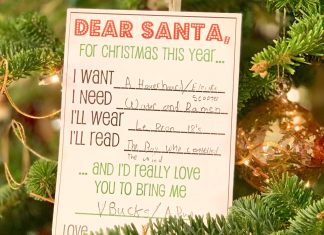 DEAR SANTA,
FOR CHRISTMAS THIS YEAR...
I WANT A Hoverboard/Electric
Scooter
I NEED Water and Ramen
I'LL WEAR LeBron 18's
I'LL READ The Boy Who
the wind
... AND I'D REALLY LOVE
YOU TO BRING ME
VBucks/ A
LOVE